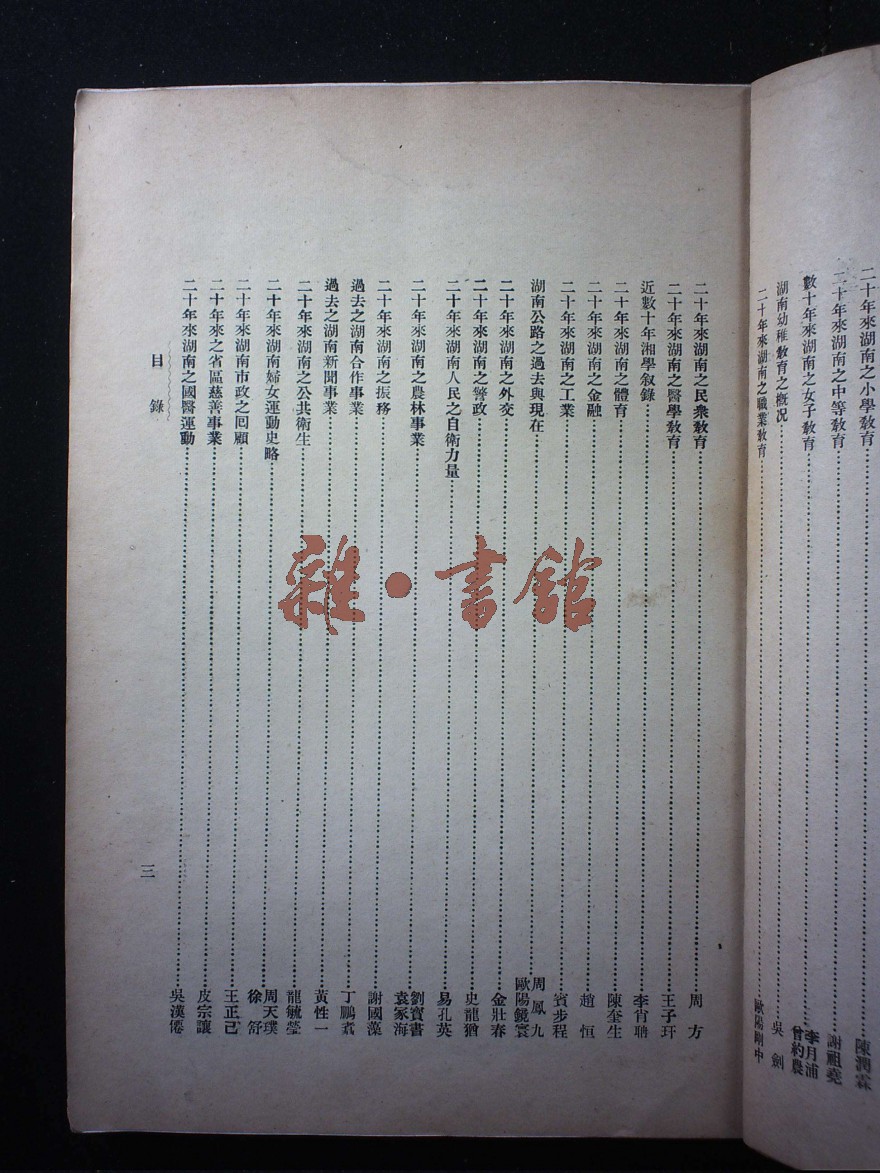 二十年來湖南之小學教育……陳潤霖
二十年來湖南之中等教育……謝祖堯
數十年來湖南之女子教育……李月浦 曾約農
湖南幼稚教育之概況……吳劍
二十年來湖南之職業教育……歐陽剛中
二十年來湖南之民衆教育……周方
二十年來湖南之醫學教育……王子玕
近數十年湘學叙錄……李肖聃
二十年來湖南之體育……陳奎生
二十年來湖南之金融……趙恒
二十年來湖南之工業……賓步程
湖南公路之過去與現在……周鳳九 歐陽鏡寰
二十年來湖南之外交……金壯春
二十年來湖南之警政……史龍猶
二十年來湖南人民之自衛力量……易孔英
二十年來湖南之農林事業……劉寶書 袁家海
二十年來湖南之振務……謝國藻
過去之湖南合作事業……丁鵬翥
過去之湖南新聞事業……黃性一
二十年來湖南之公共衛生……龍毓瑩
二十年來湖南婦女運動史略……周天璞 徐舒
二十年來湖南市政之回顧……王正己
二十年來之省區慈善事業……皮宗讓
二十年來湖南之國醫運動……吳漢僊
目錄
三
雜·書館